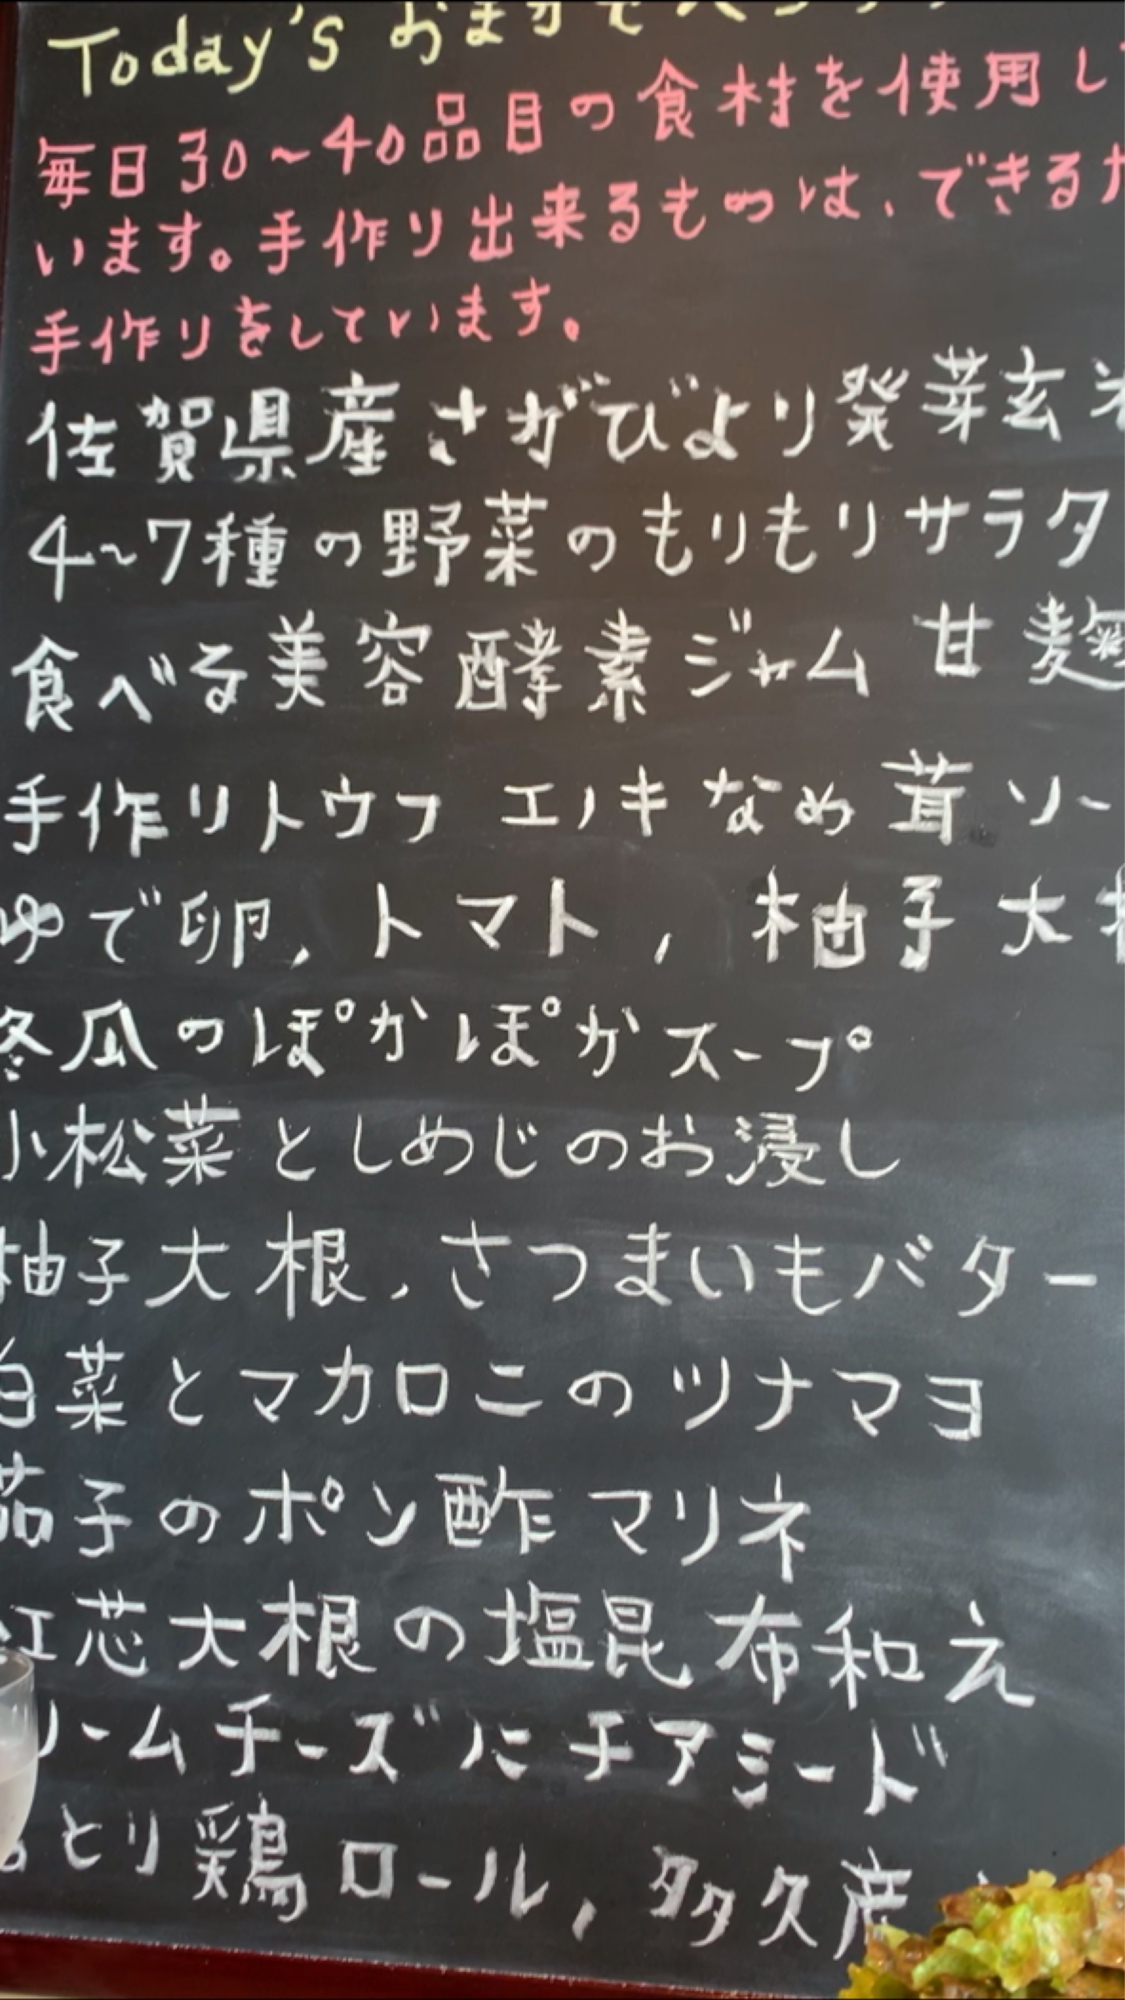 Today's おまかせべ
毎日30〜40品目の食材を使用し
います。手作り出来るものは、できるだ
手作りをしています。
佐賀県産さがびより発芽玄米
4〜7種の野菜のもりもりサラダ
食べる美容酵素ジャム 甘麹
手作リトウフ エノキなめ茸ソー
ゆで卵, トマト, 柚子大根
冬瓜のぽかぽかスープ
小松菜としめじのお浸し
柚子大根, さつまいもバター
白菜とマカロニのツナマヨ
茄子のポン酢マリネ
紅芯大根の塩昆布和え
リームチーズにチアシード
とり鶏ロール, 多久産